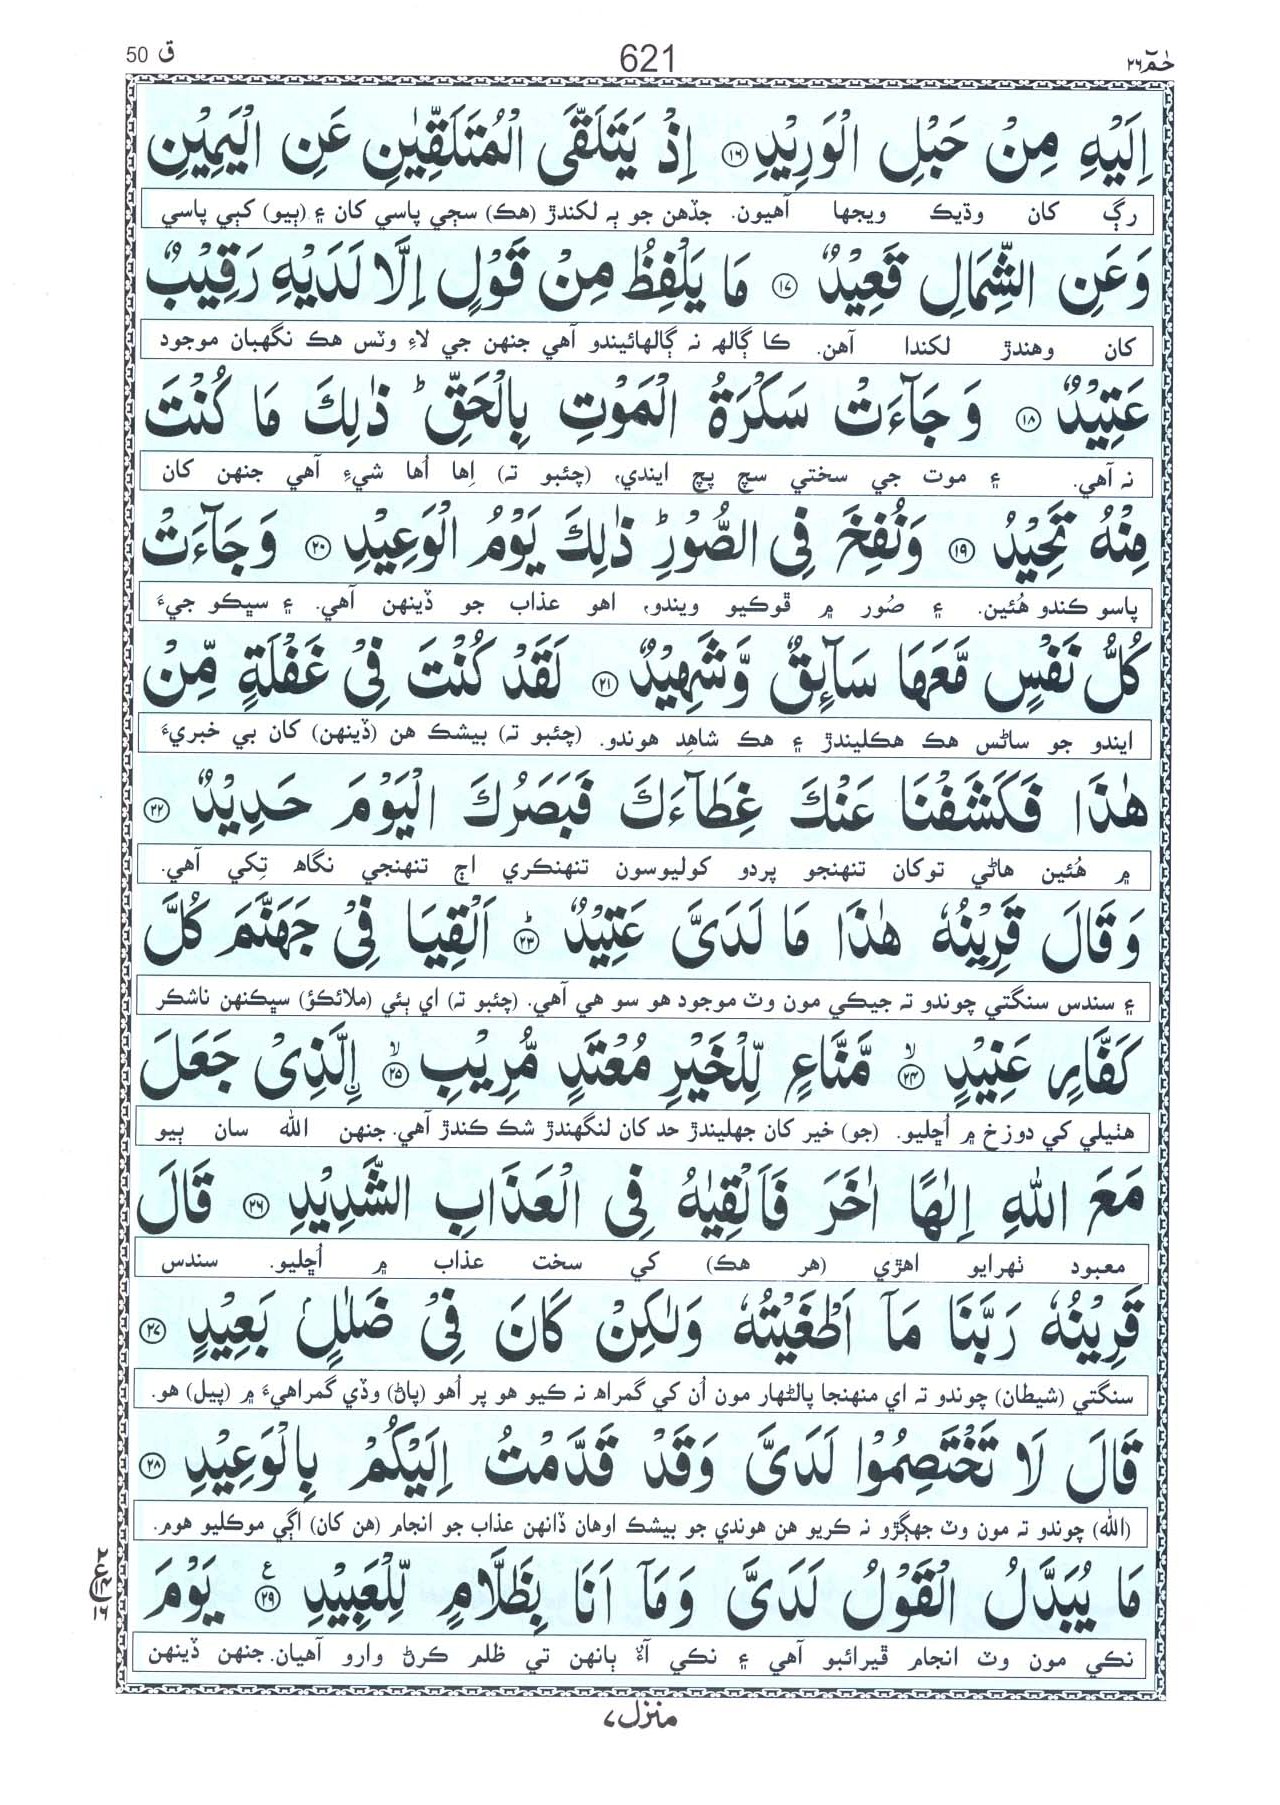 ق 50
621
حٰمٓ ٢٦
اِلَيْهِ مِنْ حَبْلِ الْوَرِيْدِ ۝١٦ اِذْ يَتَلَقَّى الْمُتَلَقِّيٰنِ عَنِ الْيَمِيْنِ
رڳ کان وڌيڪ ويجها آهيون. جڏهن جو ٻہ لکندڙ (هڪ) سڄي پاسي کان ۽ (ٻيو) کٻي پاسي
وَعَنِ الشِّمَالِ قَعِيْدٌ ۝١٧ مَا يَلْفِظُ مِنْ قَوْلٍ اِلَّا لَدَيْهِ رَقِيْبٌ
کان وهندڙ لکندا آهن. ڪا ڳالهہ نہ ڳالهائيندو آهي جنهن جي لاءِ وٽس هڪ نگهبان موجود
عَتِيْدٌ ۝١٨ وَ جَآءَتْ سَكْرَةُ الْمَوْتِ بِالْحَقِّ ؕ ذٰلِكَ مَا كُنْتَ
نہ آهي. ۽ موت جي سختي سچ پچ ايندي، (چئبو تہ) اِها اُها شيءِ آهي جنهن کان
مِنْهُ تَحِيْدُ ۝١٩ وَنُفِخَ فِى الصُّوْرِ ؕ ذٰلِكَ يَوْمُ الْوَعِيْدِ ۝٢٠ وَ جَآءَتْ
پاسو ڪندو هُئين. ۽ صُور ۾ ڦوڪيو ويندو، اهو عذاب جو ڏينهن آهي. ۽ سڀڪو جيءَ
كُلُّ نَفْسٍ مَّعَهَا سَآئِقٌ وَّشَهِيْدٌ ۝٢١ لَقَدْ كُنْتَ فِىْ غَفْلَةٍ مِّنْ
ايندو جو ساڻس هڪ هڪليندڙ ۽ هڪ شاهِد هوندو. (چئبو تہ) بيشڪ هن (ڏينهن) کان بي خبريءَ
هٰذَا فَكَشَفْنَا عَنْكَ غِطَآءَكَ فَبَصَرُكَ الْيَوْمَ حَدِيْدٌ ۝٢٢
۾ هُئين هاڻي توکان تنهنجو پردو کوليوسون تنهنڪري اڄ تنهنجي نگاهہ تِکي آهي.
وَقَالَ قَرِيْنُهٗ هٰذَا مَا لَدَىَّ عَتِيْدٌ ؕ۝٢٣ اَلْقِيَا فِىْ جَهَنَّمَ كُلَّ
۽ سندس سنگتي چوندو تہ جيڪي مون وٽ موجود هو سو هي آهي. (چئبو تہ) اي ٻئي (ملائڪؤ) سڀڪنهن ناشڪر
كَفَّارٍ عَنِيْدٍ ۙ۝٢٤ مَّنَّاعٍ لِّلْخَيْرِ مُعْتَدٍ مُّرِيْبِ ۙ۝٢٥ اِۨلَّذِىْ جَعَلَ
هٺيلي کي دوزخ ۾ اُڇليو. (جو) خير کان جهليندڙ حد کان لنگهندڙ شڪ ڪندڙ آهي. جنهن الله سان ٻيو
مَعَ اللّٰهِ اِلٰهًا اٰخَرَ فَاَلْقِيٰهُ فِى الْعَذَابِ الشَّدِيْدِ ۝٢٦ قَالَ
معبود ٺهرايو اهڙي (هر هڪ) کي سخت عذاب ۾ اُڇليو. سندس
قَرِيْنُهٗ رَبَّنَا مَاۤ اَطْغَيْتُهٗ وَلٰكِنْ كَانَ فِىْ ضَلٰلٍۭ بَعِيْدٍ ۝٢٧
سنگتي (شيطان) چوندو تہ اي منهنجا پالڻهار مون اُن کي گمراهہ نہ ڪيو هو پر اُهو (پاڻ) وڏي گمراهيءَ ۾ (پيل) هو.
قَالَ لَا تَخْتَصِمُوْا لَدَىَّ وَقَدْ قَدَّمْتُ اِلَيْكُمْ بِالْوَعِيْدِ ۝٢٨
(الله) چوندو تہ مون وٽ جهڳڙو نہ ڪريو هن هوندي جو بيشڪ اوهان ڏانهن عذاب جو انجام (هن کان) اڳي موڪليو هوم.
مَا يُبَدَّلُ الْقَوْلُ لَدَىَّ وَمَاۤ اَنَا بِظَلَّامٍ لِّلْعَبِيْدِ ۝٢٩ ع يَوْمَ
نڪي مون وٽ انجام ڦيرائبو آهي ۽ نڪي آءٌ ٻانهن تي ظلم ڪرڻ وارو آهيان. جنهن ڏينهن
منزل ٧